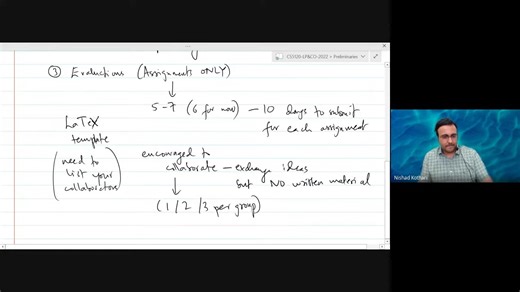 CS5120-LP&CO-2022 > Preliminaries
③ Evaluations (Assignments ONLY)
5-7 (6 for now) — 10 days to submit
for each assignment
LaTeX
template
(need to
list your
collaborators)
encouraged to
collaborate — exchange ideas
but NO written material
(1/2/3 per group)
Nishad Kothari